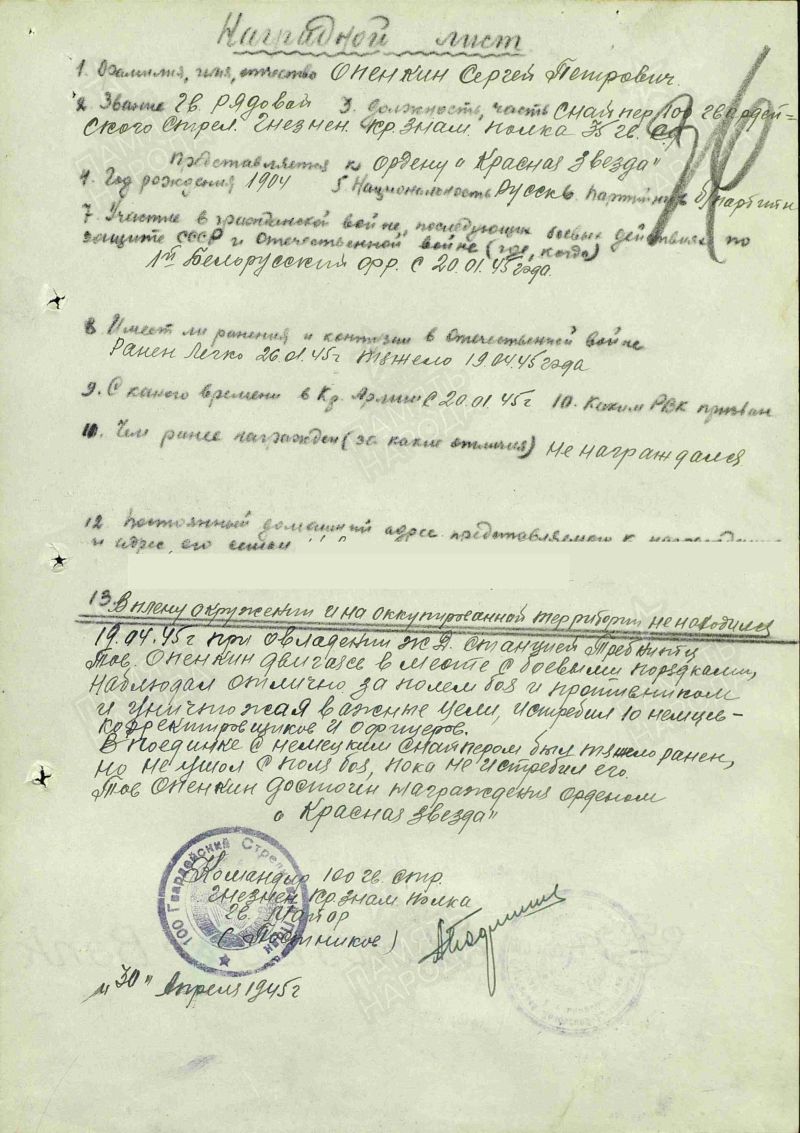 Наградной лист
1. Фамилия, имя, отчество Опенкин Сергей Петрович
2. Звание Гв. рядовой 3. должность, часть снайпер 100 гвардей-
ского стрел. Гнезнен. Кр. Знам. полка 35 гв. СД
Представляется к ордену "Красная Звезда"
4. Год рождения 1904 5. Национальность Русск. 6. Партийность б/партийн
7. Участие в гражданской войне, последующих боевых действиях по
защите СССР и отечественной войне (где, когда)
1й Белорусский фр. с 20.01.45 года.
8. Имеет ли ранения и контузии в отечественной войне
Ранен легко 26.01.45г тяжело 19.04.45 года
9. С какого времени в Кр. Армии с 20.01.45г 10. Каким РВК призван
11. Чем ранее награжден (за какие отличия) не награждался
12. Постоянный домашний адрес представляемого к награждению
и адрес его семьи
13. В плену окружении и на оккупированной территории не находился
19.04.45г при овладении ж.д. станцией Требнитц
тов. Опенкин двигаясь в месте с боевыми порядками,
наблюдал отлично за полем боя и противником
и уничтожая важные цели, истребил 10 немцев-
корректировщиков и офицеров.
В поединке с немецким снайпером был тяжело ранен,
но не ушол с поля боя, пока не истребил его.
Тов Опенкин достоин награждения орденом
"Красная звезда"
Командир 100 гв. стр.
Гнезнен Кр Знам полка
Гв. Майор
(Постников)
"30" Апреля 1945г
100 Гвардейский Стрел